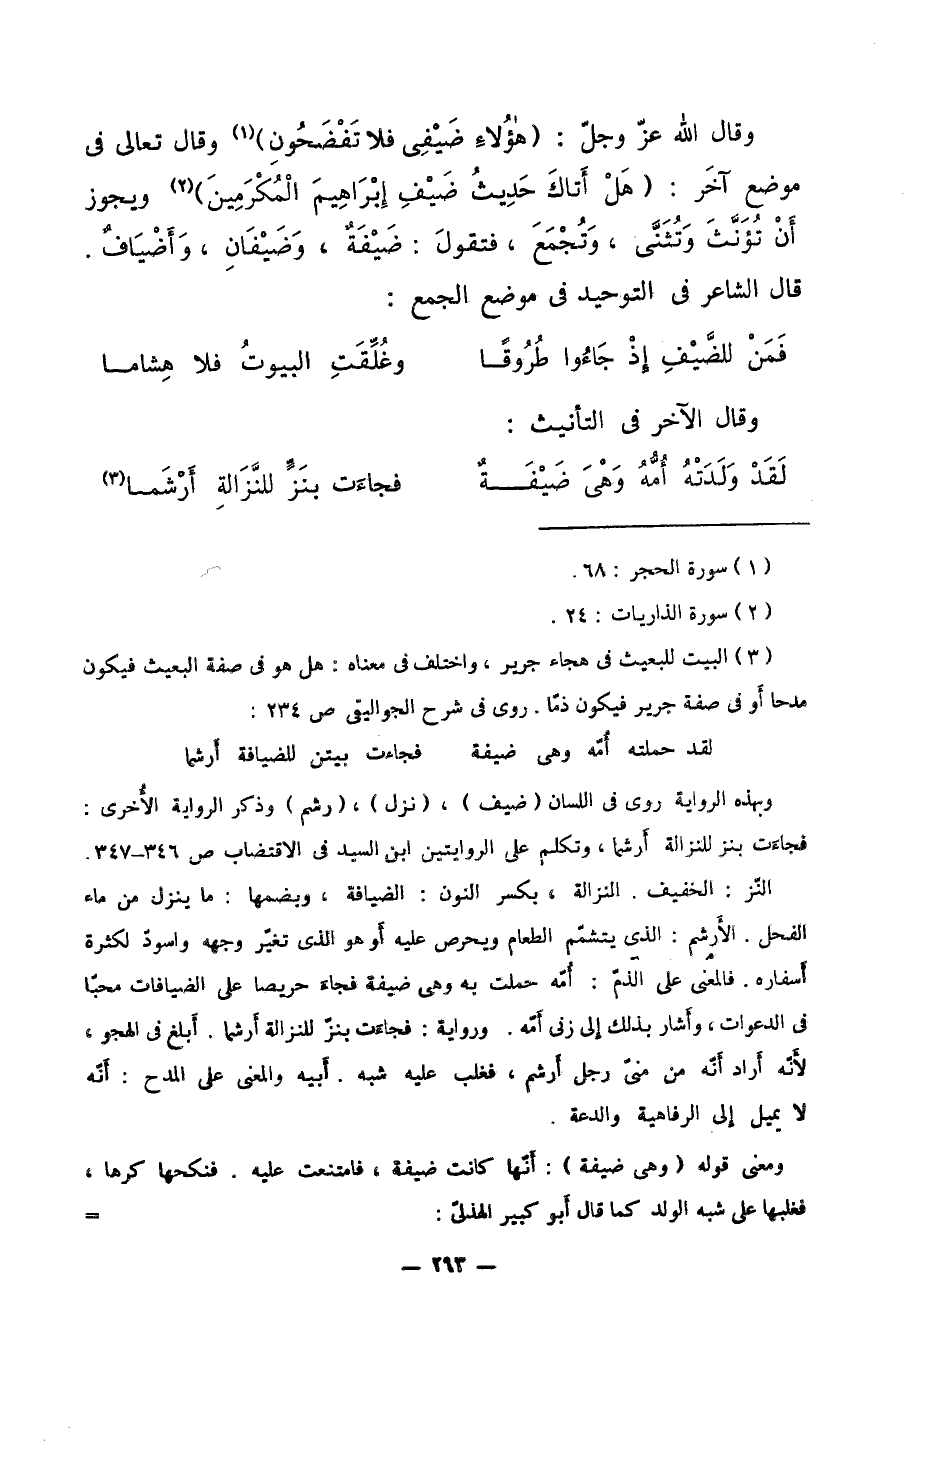 وقال الله عزّ وجلّ : ( هٰؤُلاءِ ضَيْفِى فلا تَفْضَحُونِ )(١) وقال تعالى فى
موضع آخَر : ( هَلْ أَتاكَ حَدِيثُ ضَيْفِ إِبْرَاهِيمَ الْمُكْرَمِينَ )(٢) ويجوز
أَنْ تُؤَنَّثَ وَتُثَنَّى ، وَتُجْمَعَ ، فتقولَ : ضَيْفَةٌ ، وَضَيْفَانِ ، وَأَضْيَافٌ .
قال الشاعر فى التوحيد فى موضع الجمع :
فَمَنْ للضَّيْفِ إِذْ جَاءُوا طُرُوقًا وغُلِّقَتِ البيوتُ فلا هِشاما
وقال الآخر فى التأنيث :
لَقَدْ وَلَدَتْهُ أُمُّهُ وَهْىَ ضَيْفَةٌ فجاءَت بنَزٍّ للنَّزَالةِ أَرْشَما(٣)
( ١ ) سورة الحجر : ٦٨ .
( ٢ ) سورة الذاريات : ٢٤ .
( ٣ ) البيت للبعيث فى هجاء جرير ، واختلف فى معناه : هل هو فى صفة البعيث فيكون
مدحا أو فى صفة جرير فيكون ذمّا . روى فى شرح الجواليقى ص ٢٣٤ :
لقد حملته أُمّه وهى ضيفة فجاءت بيتن للضيافة أرشما
وبهذه الرواية روى فى اللسان ( ضيف ) ، ( نزل ) ، ( رشم ) وذكر الرواية الأُخرى :
فجاءَت بنز للنزالة أرشما ، وتكلم على الروايتين ابن السيد فى الاقتضاب ص ٣٤٦–٣٤٧ .
النّز : الخفيف . النزالة ، بكسر النون : الضيافة ، وبضمها : ما ينزل من ماء
الفحل . الأَرشم : الذى يتشمّم الطعام ويحرص عليه أو هو الذى تغيّر وجهه واسودّ لكثرة
أسفاره . فالمعنى على الذمّ : أُمّه حملت به وهى ضيفة فجاء حريصا على الضيافات محبّا
فى الدعوات ، وأشار بذلك إلى زنى أمّه . ورواية : فجاءَت بنزّ للنزالة أرشما . أبلغ فى الهجو ،
لأنّه أراد أنّه من منىّ رجل أرشم ، فغلب عليه شبه . أبيه والمعنى على المدح : أنّه
لا يميل إلى الرفاهية والدعة .
ومعنى قوله ( وهى ضيفة ) : أنّها كانت ضيفة ، فامتنعت عليه . فنكحها كرها ،
فغلبها على شبه الولد كما قال أبو كبير الهذلىّ : =
— ٢٦٣ —